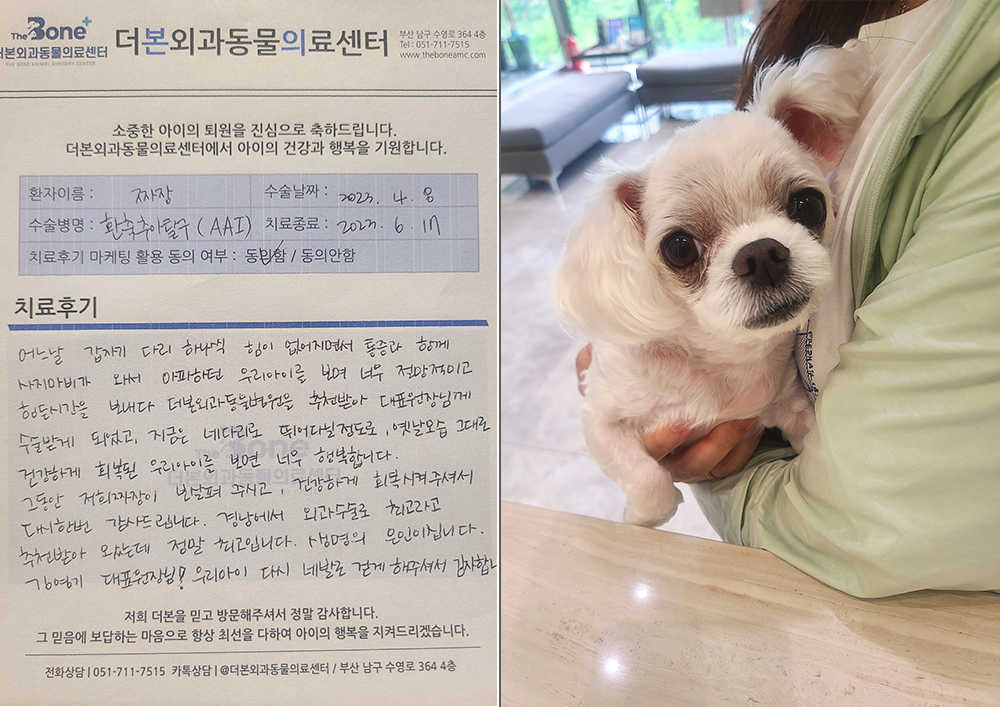 The Bone+
더본외과동물의료센터
THE BONE ANIMAL SURGERY CENTER
더본외과동물의료센터
부산 남구 수영로 364 4층
Tel : 051-711-7515
www.theboneamc.com
소중한 아이의 퇴원을 진심으로 축하드립니다.
더본외과동물의료센터에서 아이의 건강과 행복을 기원합니다.
환자이름 : 짜장 수술날짜 : 2023. 4. 8
수술병명 : 환축추아탈구 (AAI) 치료종료 : 2023. 6. 17
치료후기 마케팅 활용 동의 여부 : 동의함 / 동의안함
치료후기
어느날 갑자기 다리 하나씩 힘이 없어지면서 통증과 함께
사지마비가 와서 아파하던 우리아이를 보며 너무 절망적이고
힘든시간을 보내다 더본외과동물병원을 추천받아 대표원장님께
수술받게 되었고, 지금은 네다리로 뛰어다닐정도로, 옛날모습 그대로
건강하게 회복된 우리아이를 보면 너무 행복합니다.
그동안 저희짜장이 보살펴 주시고, 건강하게 회복시켜주셔서
다시한번 감사드립니다. 경남에서 외과수술로 최고라고
추천받아 왔는데 정말 최고입니다. 생명의 은인이십니다.
대표원장님! 우리아이 다시 네발로 걷게 해주셔서 감사합니
The Bone
더본외과동물의료센터
저희 더본을 믿고 방문해주셔서 정말 감사합니다.
그 믿음에 보답하는 마음으로 항상 최선을 다하여 아이의 행복을 지켜드리겠습니다.
전화상담 | 051-711-7515 카톡상담 | @더본외과동물의료센터 / 부산 남구 수영로 364 4층